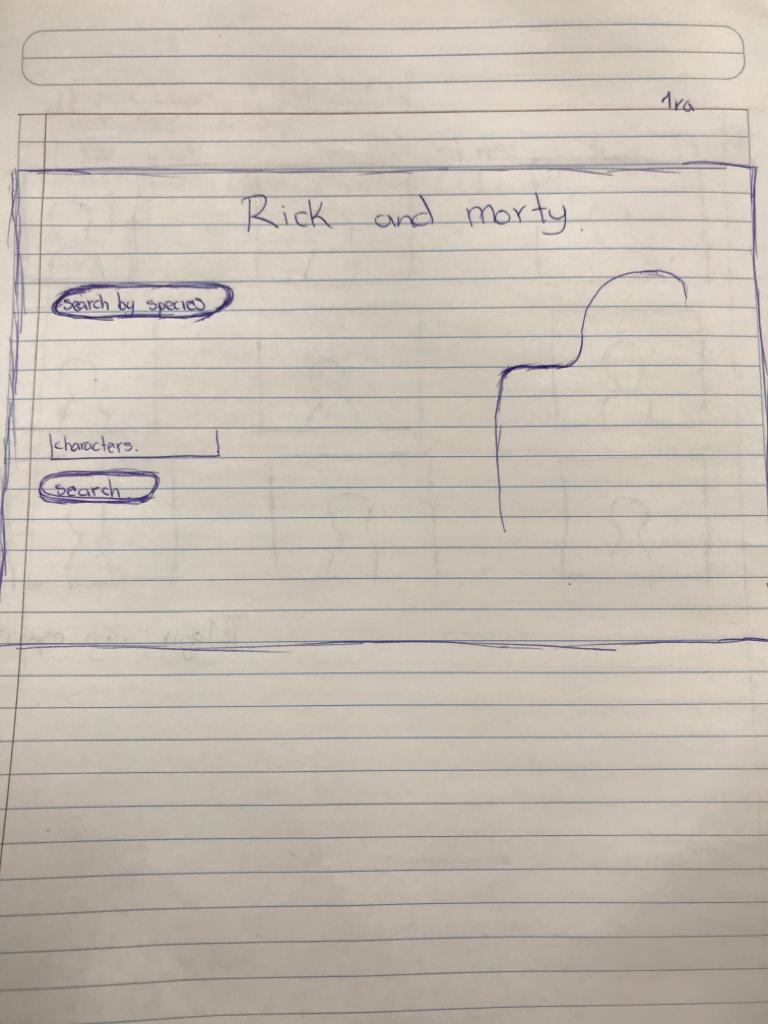 1ra
Rick and morty.
search by species
characters.
search